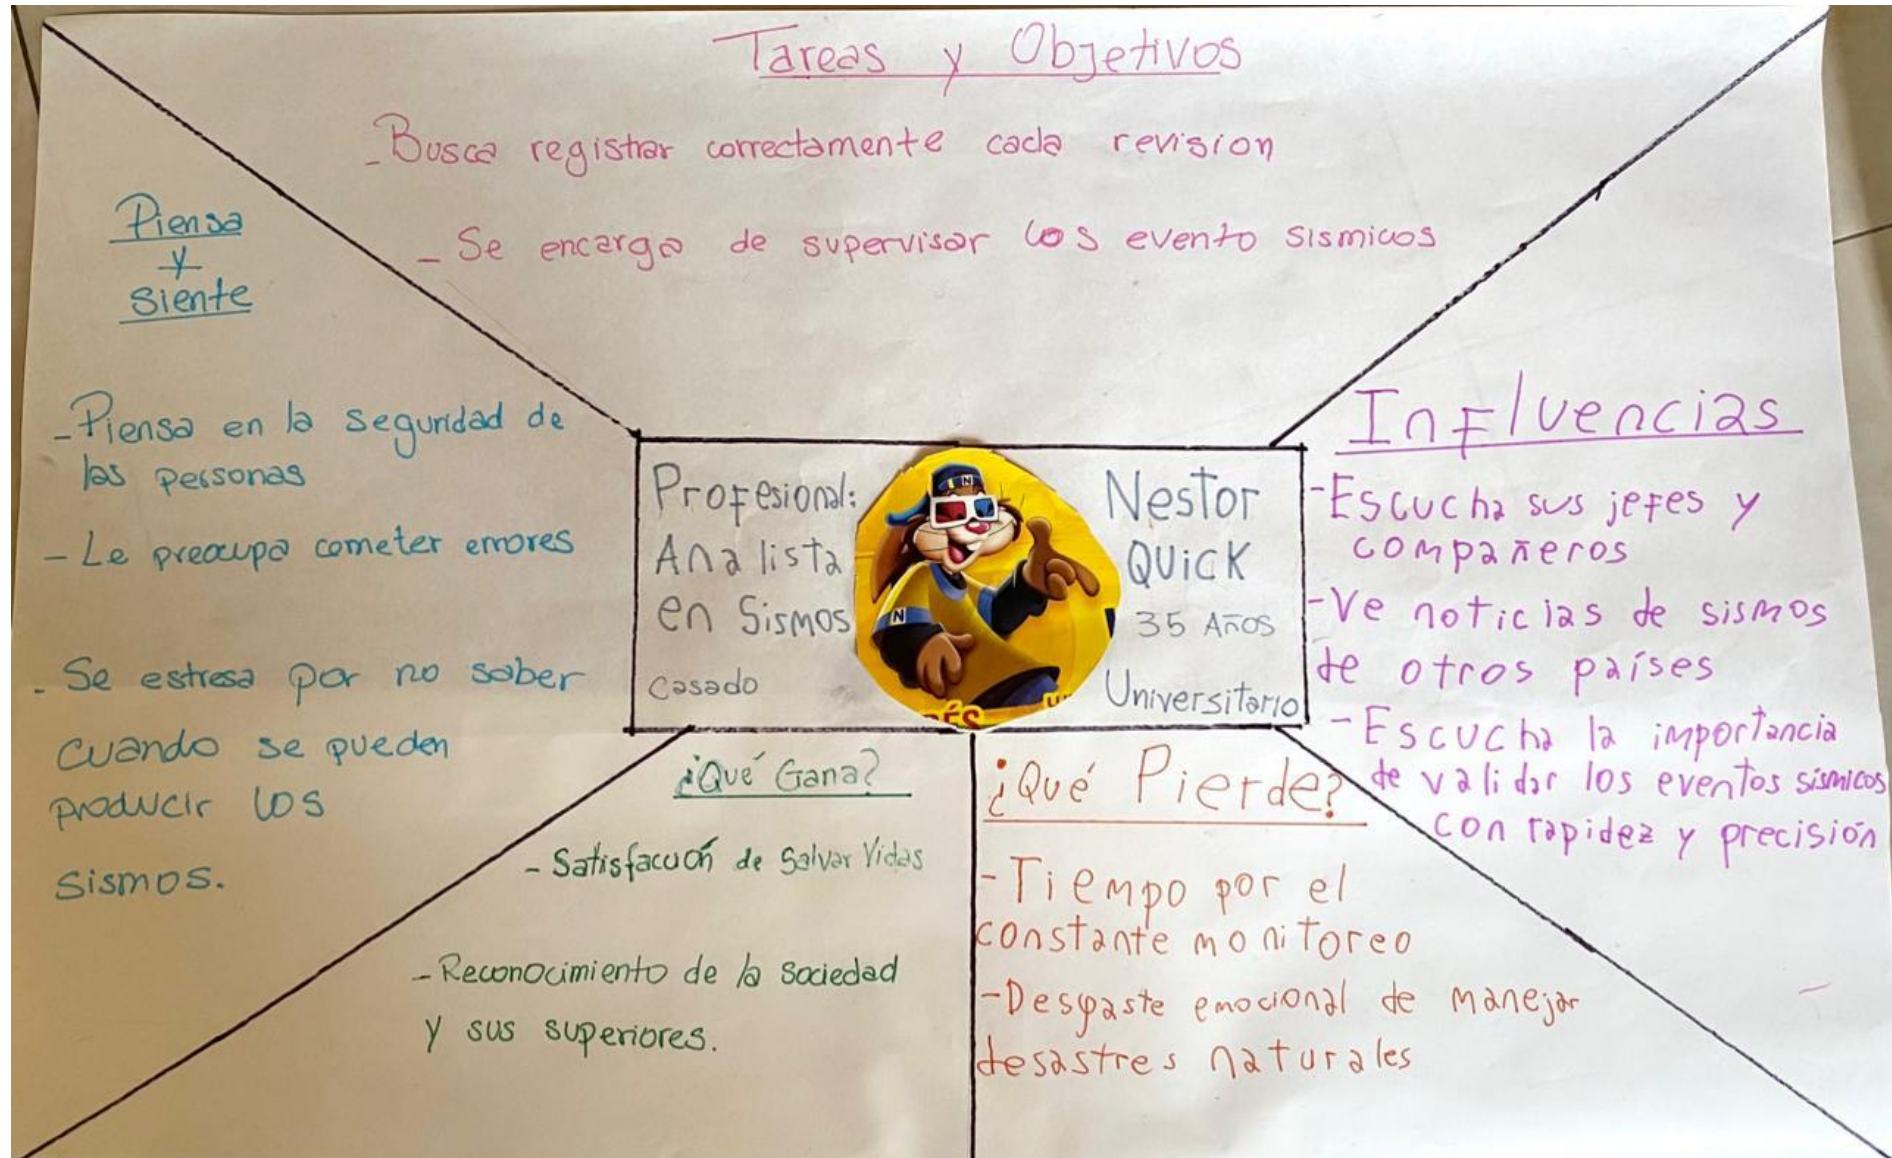 Tareas y Objetivos
- Busca registrar correctamente cada revision
- Se encarga de supervisar los evento sismicos
Piensa
y
Siente
- Piensa en la seguridad de
las personas
- Le preocupa cometer errores
- Se estresa por no saber
cuando se pueden
producir los
sismos.
Profesional:
Analista
en Sismos
Casado
N
N
Nestor
QUICK
35 Años
Universitario
Influencias
- Escucha sus jefes y
compañeros
- Ve noticias de sismos
de otros países
- Escucha la importancia
de validar los eventos sismicos
con rapidez y precisión
¿Qué Gana?
- Satisfacción de Salvar Vidas
- Reconocimiento de la sociedad
y sus superiores.
¿Qué Pierde?
- Tiempo por el
constante monitoreo
- Desgaste emocional de manejar
desastres naturales